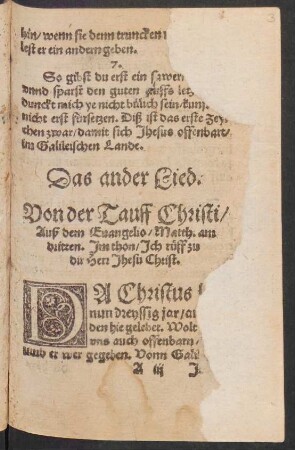 hin/wenn sie denn truncken
lest er ein andern geben.
7.
So gibst du erst ein
vnnd sparst den guten
duncket mich ye nicht billich sein/
nicht erst fürsetzen. Diß ist das erste
chen zwar/damit sich Jhesus offenbart/
im Galileischen Lande.
Das ander Lied.
Von der Tauff Christi/
Auß dem Euangelio/Matth. am
dritten. Jm thon/Ich rüff zu
dir Herr Jhesu Christ.
DA Christus
nun dreyssig jar/
den hie gelebet. Wolt
vns auch offenbarn/
vnnd er wer gegeben. Vonn
A iij